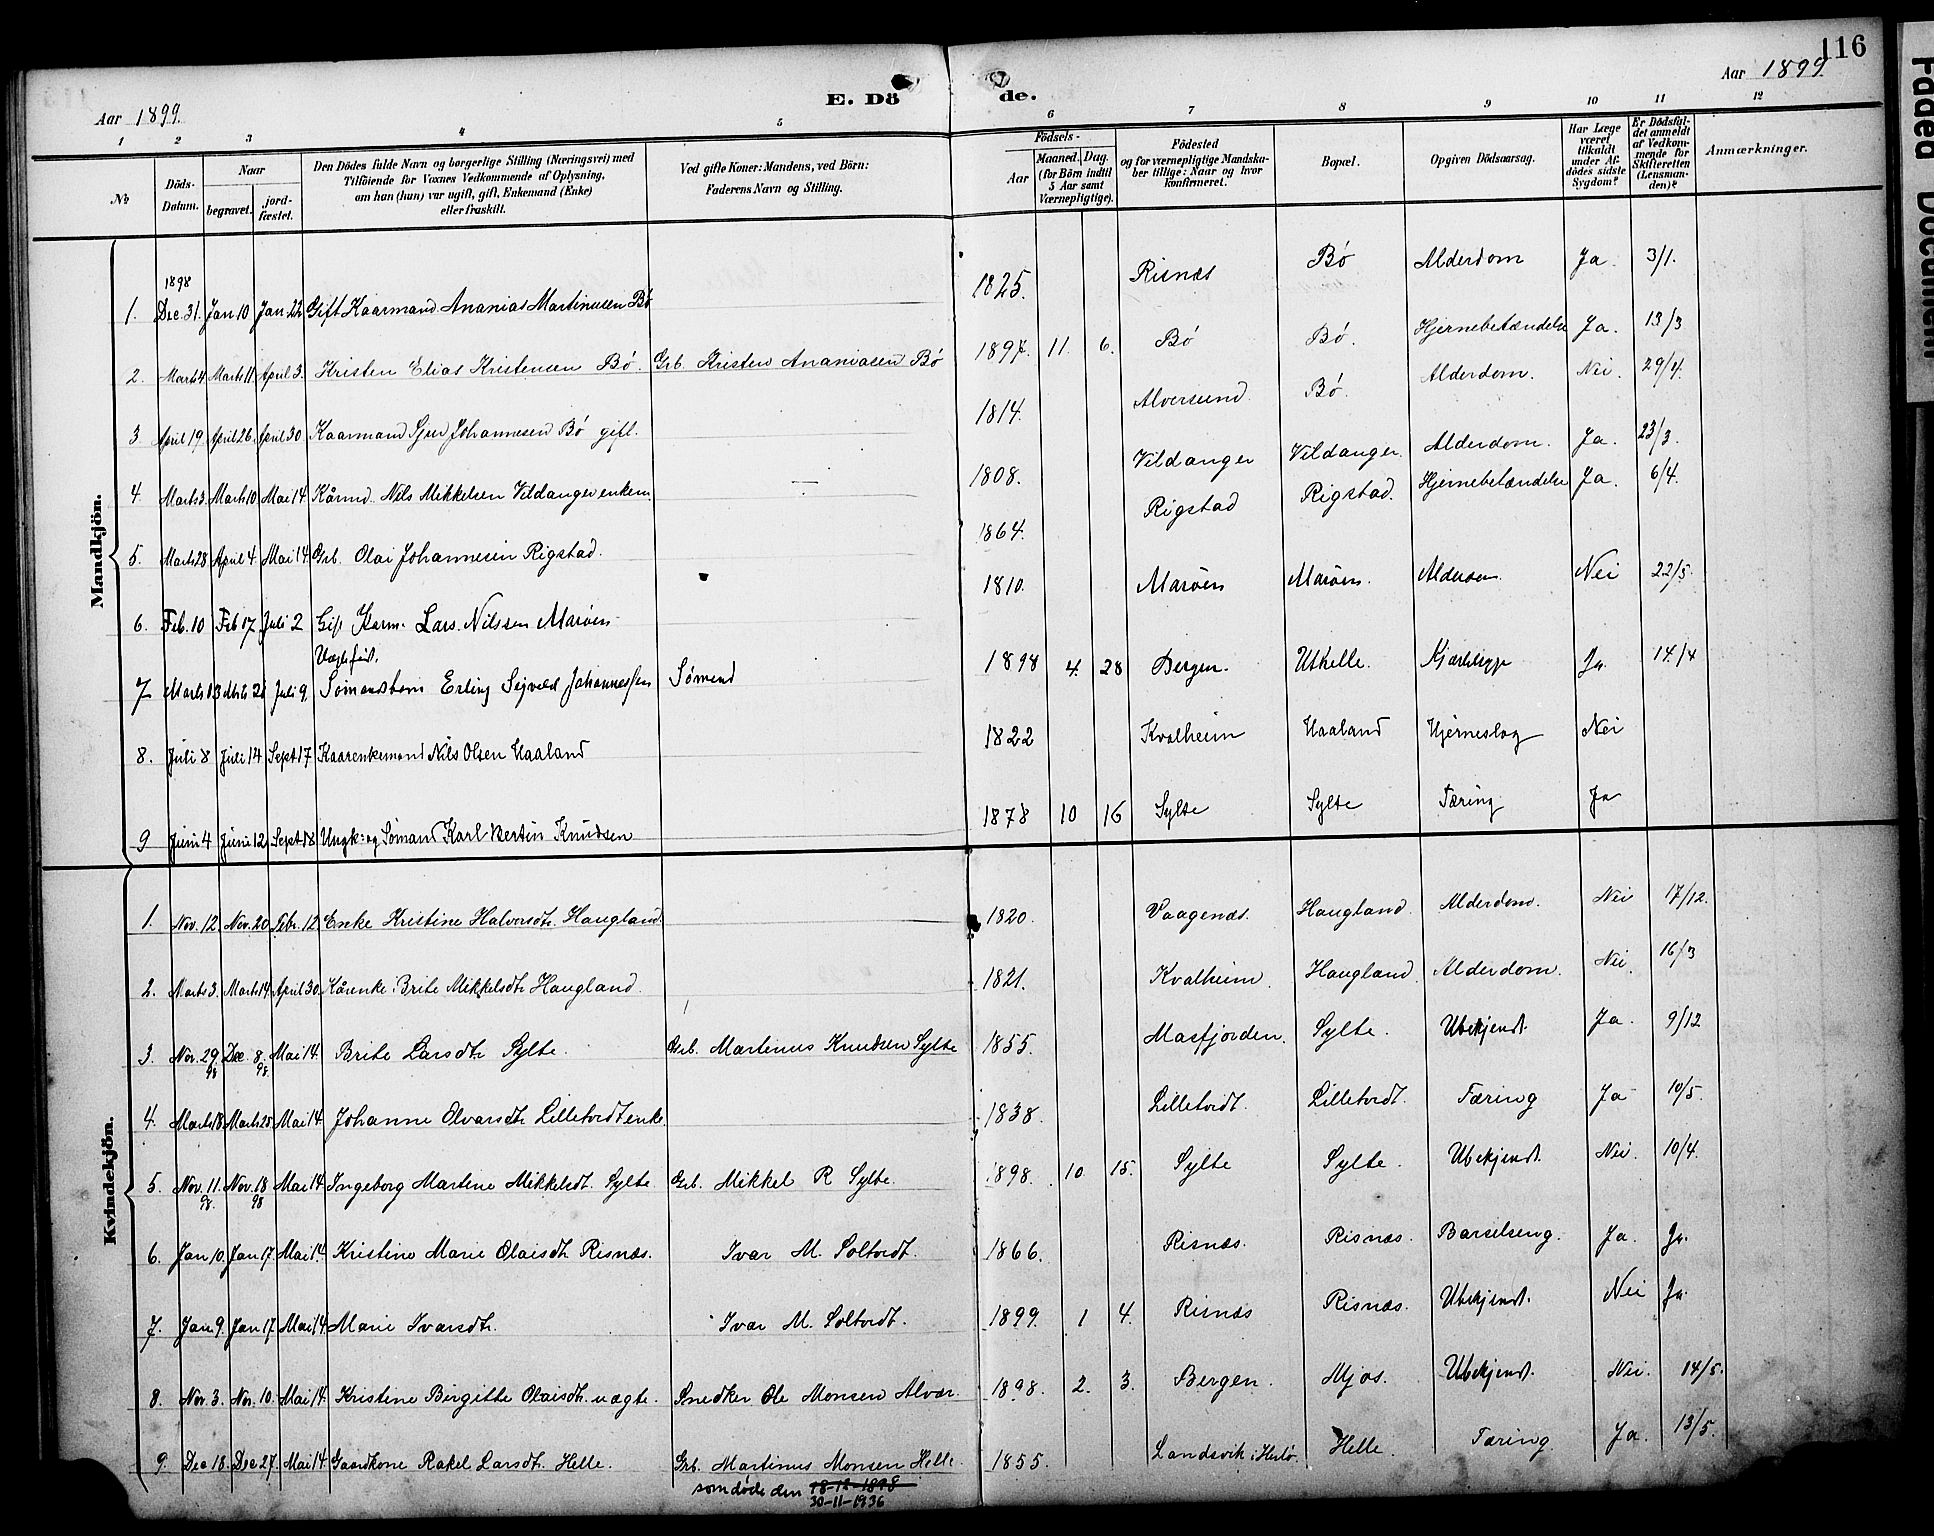 116
Aar 1899.
E. Döde.
Aar 1899
1 2 3 4 5 6 7 8 9 10 11 12
No
Döds-Datum.
Naar
begravet.
jord-fæstet.
Den Dödes fulde Navn og borgerlige Stilling (Næringsvei) med
Tilföiende for Voxnes Vedkommende af Oplysning,
om han (hun) var ugift, gift, Enkemand (Enke)
eller fraskilt.
Ved gifte Koner: Mandens, ved Börn:
Faderens Navn og Stilling.
Födsels-
Aar
Maaned. Dag.
(for Börn indtil
5 Aar samt
Værnepligtige).
Födested
og for værnepligtige Mandska-
ber tillige: Naar og hvor
konfirmeret.
Bopæl.
Opgiven Dödsaarsag.
Har Læge
været
tilkaldt
under Af-
dödes sidste
Sygdom?
Er Dödsfal-
det anmeldt
af Vedkom-
mende for
Skifteretten
(Lensman-
den)?
Anmærkninger.
Mandkjön.
1898
1. Dec. 31. Jan 10 Jan 22 Gift Kaarmand Ananias Martinusen Bö 1825. Risnæs Bö Alderdom Ja. 3/1.
2. Marts 4 Marts 11. April 3. Kristen Elias Kristensen Bö. Grb. Kristen Ananiasen Bö 1897. 11. 6. Bö Bö. Hjernebetændelse Ja. 13/3
3 April 19. April 26. April 30 Kaarmand Sjur Johannesen Bö gift. 1814. Alversund. Bö. Alderdom. Nei. 29/4.
4. Marts 3. Marts 10 Mai 14 Kårmd. Nils Mikkelsen Vildanger enkem. 1808. Vildanger Vildanger. Alderdom. Ja. 23/3.
5. Marts 28 April 4 Mai 14 Grb. Olai Johannesen Rigstad. 1864. Rigstad Rigstad. Hjernebetændelse Ja. 6/4.
6. Feb. 10 Feb 17 Juli 2 Gift Karm. Lars Nilssen Maröen 1810. Maröen Maröen. Nei 22/5.
Uægtefødt.
7 Marts 13 Juli 9 Sömandsbarn Erling Johannessen Sömand 1898 4. 28 Bergen. Utkelle. Ja. 14/4
8. Juli 8 Juli 14 Sept 17 Kaarenkemand Nils Olsen Haaland 1822 Kvalheim Haaland Hjerneslag Nei
9 Juni 4 Juni 12 Sept 18 Ungk: og Sömand Karl Bertin Knudsen 1878 10 16 Sylte Sylte Tæring Ja
Kvindekjön.
1. Nov. 12. Nov. 20 Febr. 12. Enke Kristine Halvorsdtr. Haugland. 1820. Vaagenæs. Haugland. Alderdom. Nei 17/12.
2. Marts 3. Marts 14. April 30. Kårenke Brite Mikkelsdtr Haugland. 1821. Kvalheim. Haugland. Alderdom. Nei. 16/3
3. Nov. 29 98 Dec. 8. 98. Mai 14. Brite Larsdtr Sylte. Grb. Martinus Knudsen Sylte 1855. Masfjorden. Sylte. Ubekjendt. Ja. 9/12
4. Marts 18. Marts 25 Mai 14. Johanne Olvarsdtr Lilletvedt enke 1838. Lilletvedt. Lilletvedt. Tæring Ja 10/5.
5. Nov. 11. 98. Nov. 18 98 Mai 14 Ingeborg Martine Mikkelsdt. Sylte Grb. Mikkel R Sylte. 1898. 10 15. Sylte Sylte. Ubekjendt. Nei. 10/4.
6. Jan 10. Jan 17. Mai 14. Kristine Marie Olaisdtr Risnæs. Ivar M. Soltvedt. 1866. Risnæs. Risnæs. Barselseng. Ja. Ja.
7. Jan 9. Jan 17. Mai 14 Marie Ivarsdtr. Ivar M. Soltvedt. 1899. 1 4. Risnæs Risnæs. Ubekjendt. Nei Ja.
8. Nov. 3. Nov. 10. Mai 14. Kristine Birgitte Olaisdtr. uægte. Snedker Ole Monsen Alvær. 1898. 2. 3. Bergen. Mjøs. Ubekjendt. Nei. 14/5.
9. Dec 18. Dec 27. Mai 14 Gaardkone Rakel Larsdtr. Helle. Grb. Martinus Monsen Helle. 1855. Landsvik i Herlö. Helle. Tæring Ja. 13/5.
som døde den 18-12-1898
30-11-1936
Faded Document